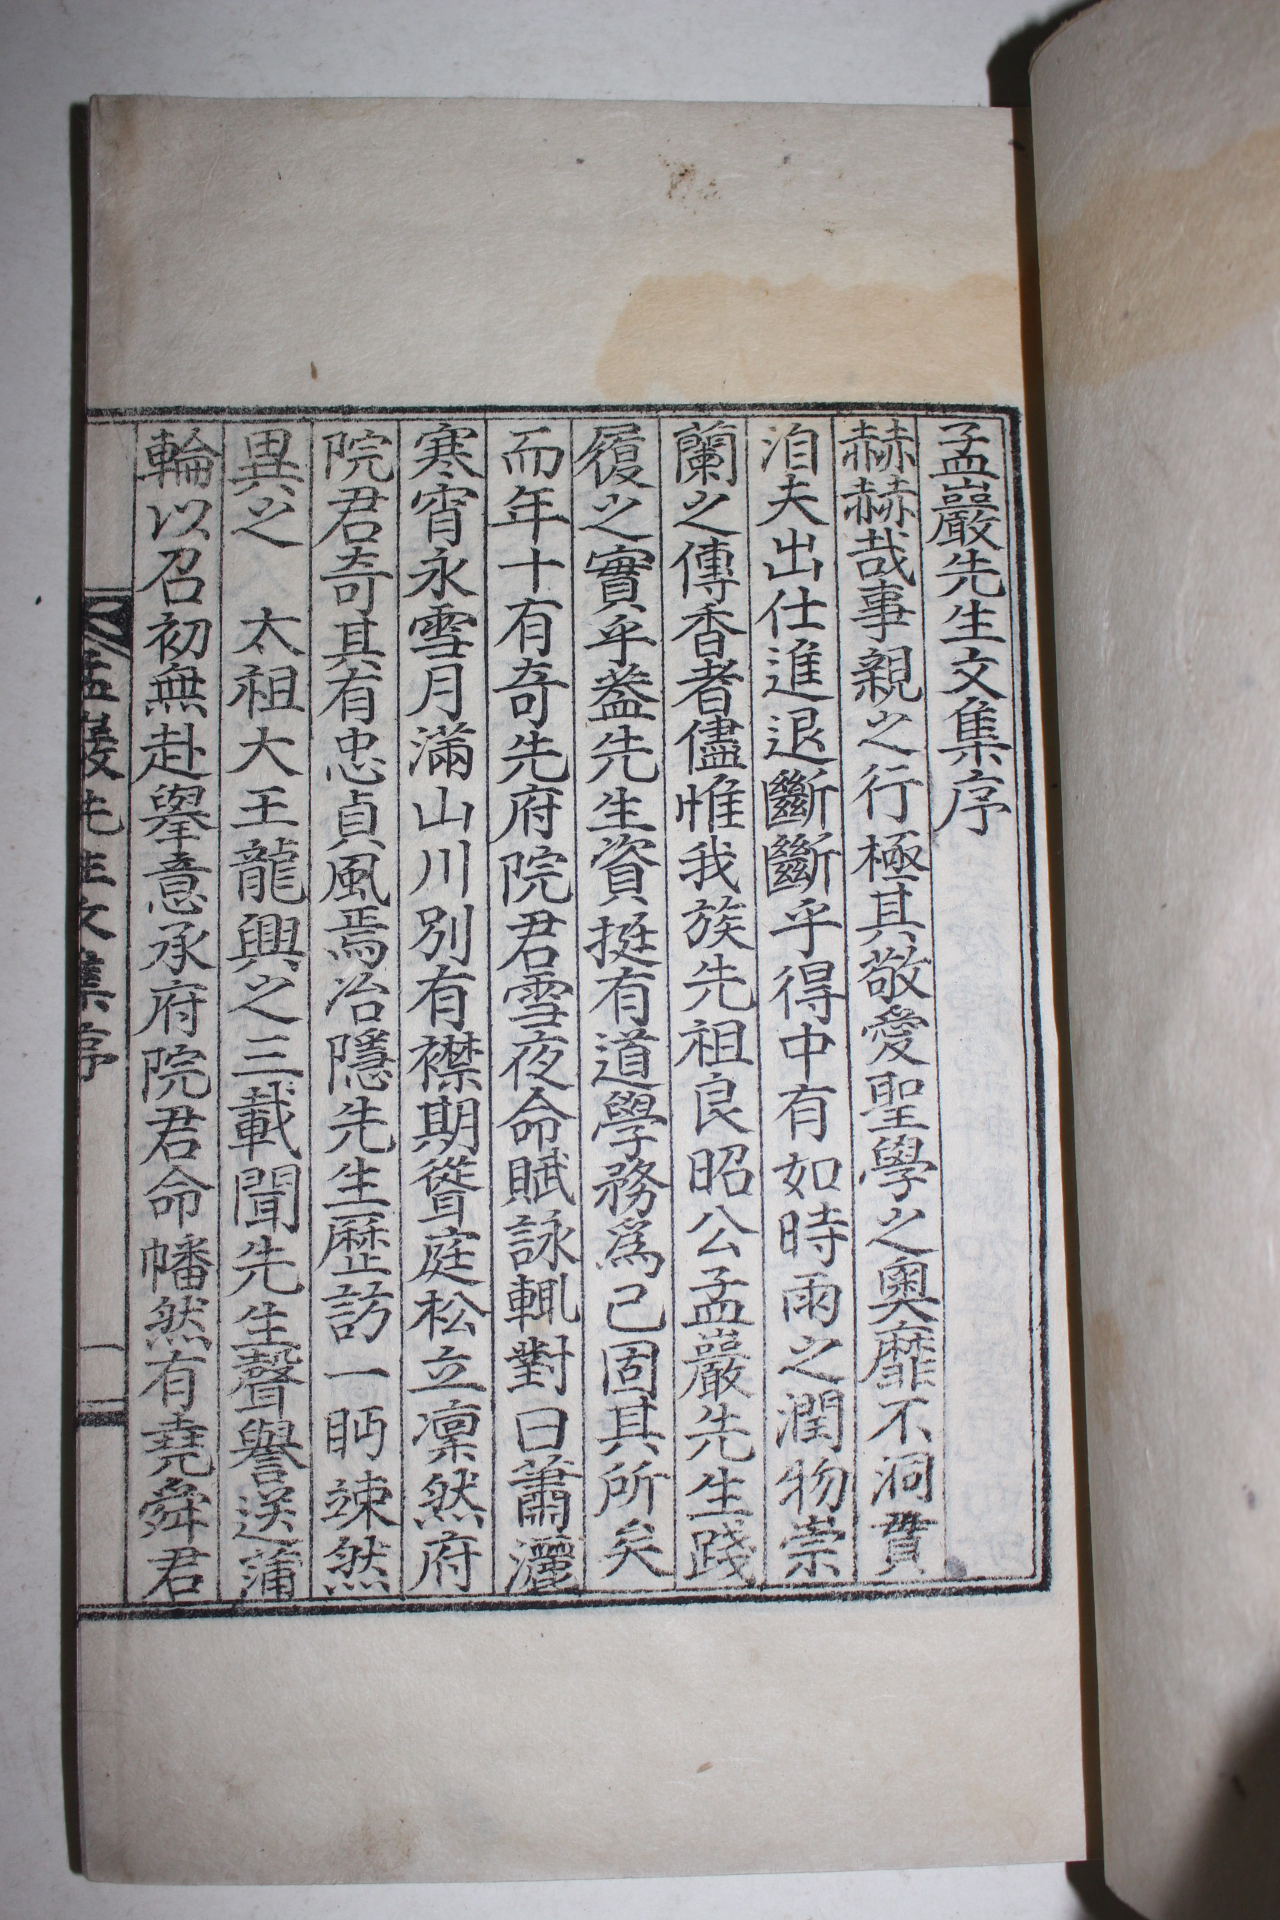 孟巖先生文集序
赫赫哉事親之行極其敬愛聖學之奧靡不洞貫
洎夫出仕進退斷斷乎得中有如時雨之潤物崇
蘭之傳香者儘惟我族先祖良昭公孟巖先生踐
履之實乎盖先生資挺有道學務爲己固其所矣
而年十有奇先府院君雪夜命賦詠輒對曰蕭灑
寒宵永雪月滿山川別有襟期聳庭松立凜然府
院君奇其有忠貞風焉冶隱先生歷訪一眄竦然
異之 太祖大王龍興之三載聞先生聲譽送蒲
輪以召初無赴擧意承府院君命幡然有堯舜君
孟巖先生文集序 一